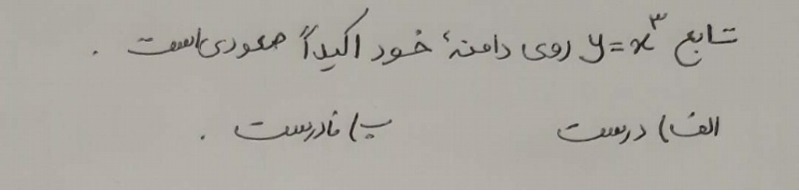 تابع y = x³ روی دامنهٔ خود اکیداً صعودی است .
الف) درست ب) نادرست .